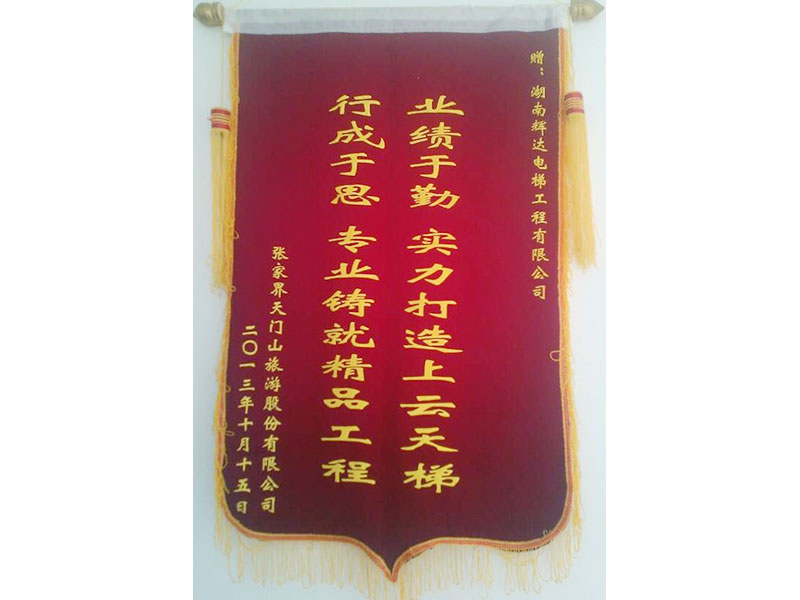 赠：湖南辉达电梯工程有限公司
业绩于勤 实力打造上云天梯
行成于思 专业铸就精品工程
张家界天门山旅游股份有限公司
二〇一三年十月十五日